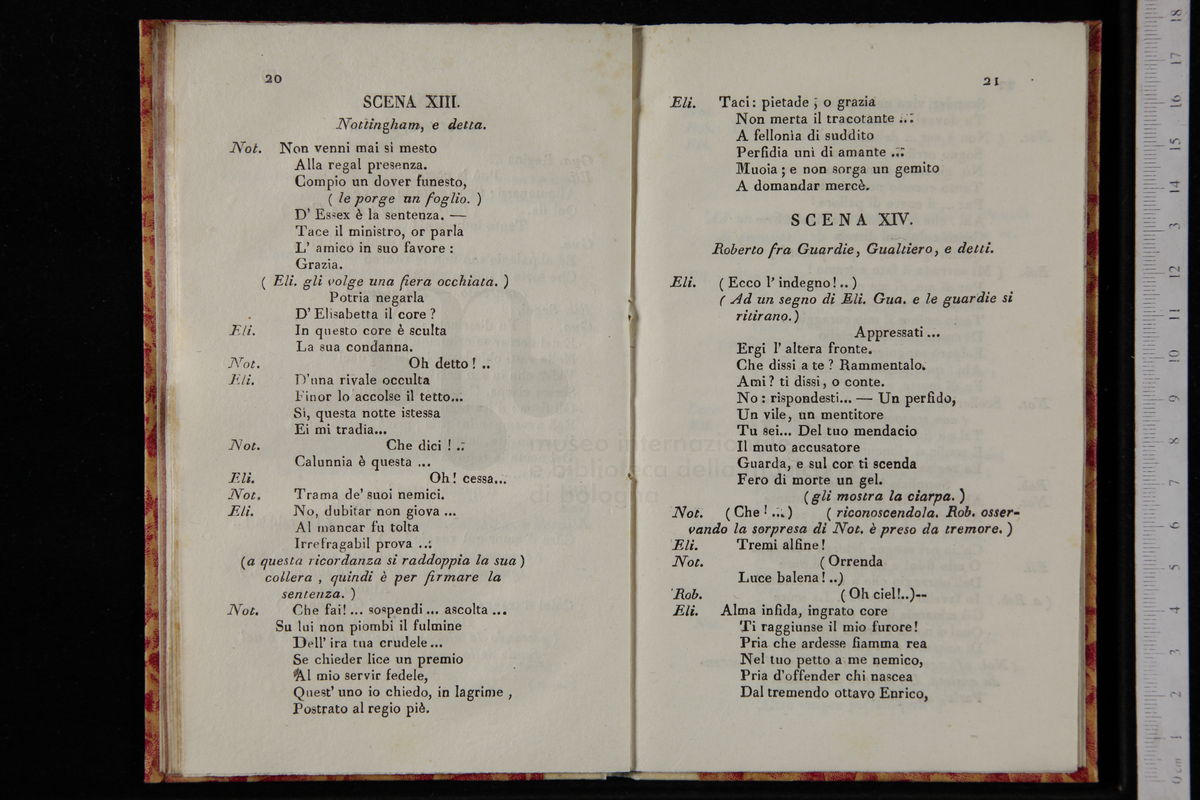 20
SCENA XIII.
Nottingham, e detta.
Not. Non venni mai sì mesto
Alla regal presenza.
Compio un dover funesto,
( le porge un foglio. )
D' Essex è la sentenza. —
Tace il ministro, or parla
L' amico in suo favore :
Grazia.
( Eli. gli volge una fiera occhiata. )
Potria negarla
D' Elisabetta il core ?
Eli. In questo core è sculta
La sua condanna.
Not. Oh detto ! ..
Eli. D'una rivale occulta
Finor lo accolse il tetto...
Sì, questa notte istessa
Ei mi tradia...
Not. Che dici ! ..:
Calunnia è questa ...
Eli. Oh! cessa...
Not. Trama de' suoi nemici.
Eli. No, dubitar non giova ...
Al mancar fu tolta
Irrefragabil prova ..:
(a questa ricordanza si raddoppia la sua )
collera , quindi è per firmare la
sentenza. )
Not. Che fai! ... sospendi ... ascolta ...
Su lui non piombi il fulmine
Dell' ira tua crudele ...
Se chieder lice un premio
Al mio servir fedele,
Quest' uno io chiedo, in lagrime ,
Postrato al regio piè.
21
Eli. Taci : pietade , o grazia
Non merta il tracotante ...
A fellonìa di suddito
Perfidia unì di amante ...
Muoia ; e non sorga un gemito
A domandar mercè.
SCENA XIV.
Roberto fra Guardie, Gualtiero, e detti.
Eli. ( Ecco l' indegno ! .. )
( Ad un segno di Eli. Gua. e le guardie si
ritirano.)
Appressati ...
Ergi l' altera fronte.
Che dissi a te ? Rammentalo.
Ami ? ti dissi , o conte.
No : rispondesti... — Un perfido,
Un vile, un mentitore
Tu sei... Del tuo mendacio
Il muto accusatore
Guarda, e sul cor ti scenda
Fero di morte un gel.
(gli mostra la ciarpa. )
Not. ( Che ! ... ) ( riconoscendola. Rob. osser-
vando la sorpresa di Not. è preso da tremore. )
Eli. Tremi alfine !
Not. ( Orrenda
Luce balena ! ..)
Rob. ( Oh ciel!..)--
Eli. Alma infida, ingrato core
Ti raggiunse il mio furore !
Pria che ardesse fiamma rea
Nel tuo petto a me nemico,
Pria d'offender chi nascea
Dal tremendo ottavo Enrico,
museo internazio
e biblioteca della
di bologna
0 cm 1 2 3 4 5 6 7 8 9 10 11 12 13 14 15 16 17 18